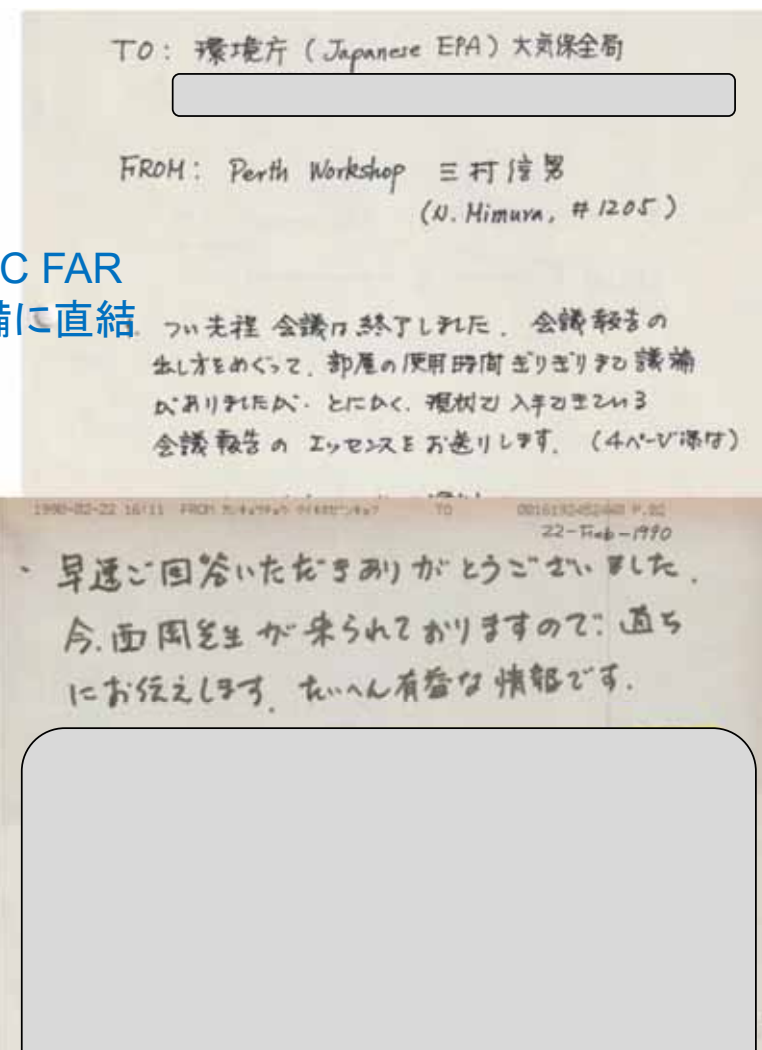 TO: 環境庁 (Japanese EPA) 大気保全局
FROM: Perth Workshop 三村信男
(N. Mimura, #1205)
C FAR
備に直結
つい先程 会議は終了しました. 会議報告の
出し方をめぐって、部屋の使用時間ぎりぎりまで議論
がありましたが、とにかく、現状で入手できている
会議報告の エッセンスを お送りします. (4ページ添付)
1990-02-22 16:11 FROM カンキョウチョウ TO P.02
22-Feb-1990
・早速ご回答いただきありがとうございました.
今、西岡先生が来られておりますので、直ち
にお伝えします. たいへん有益な情報です.